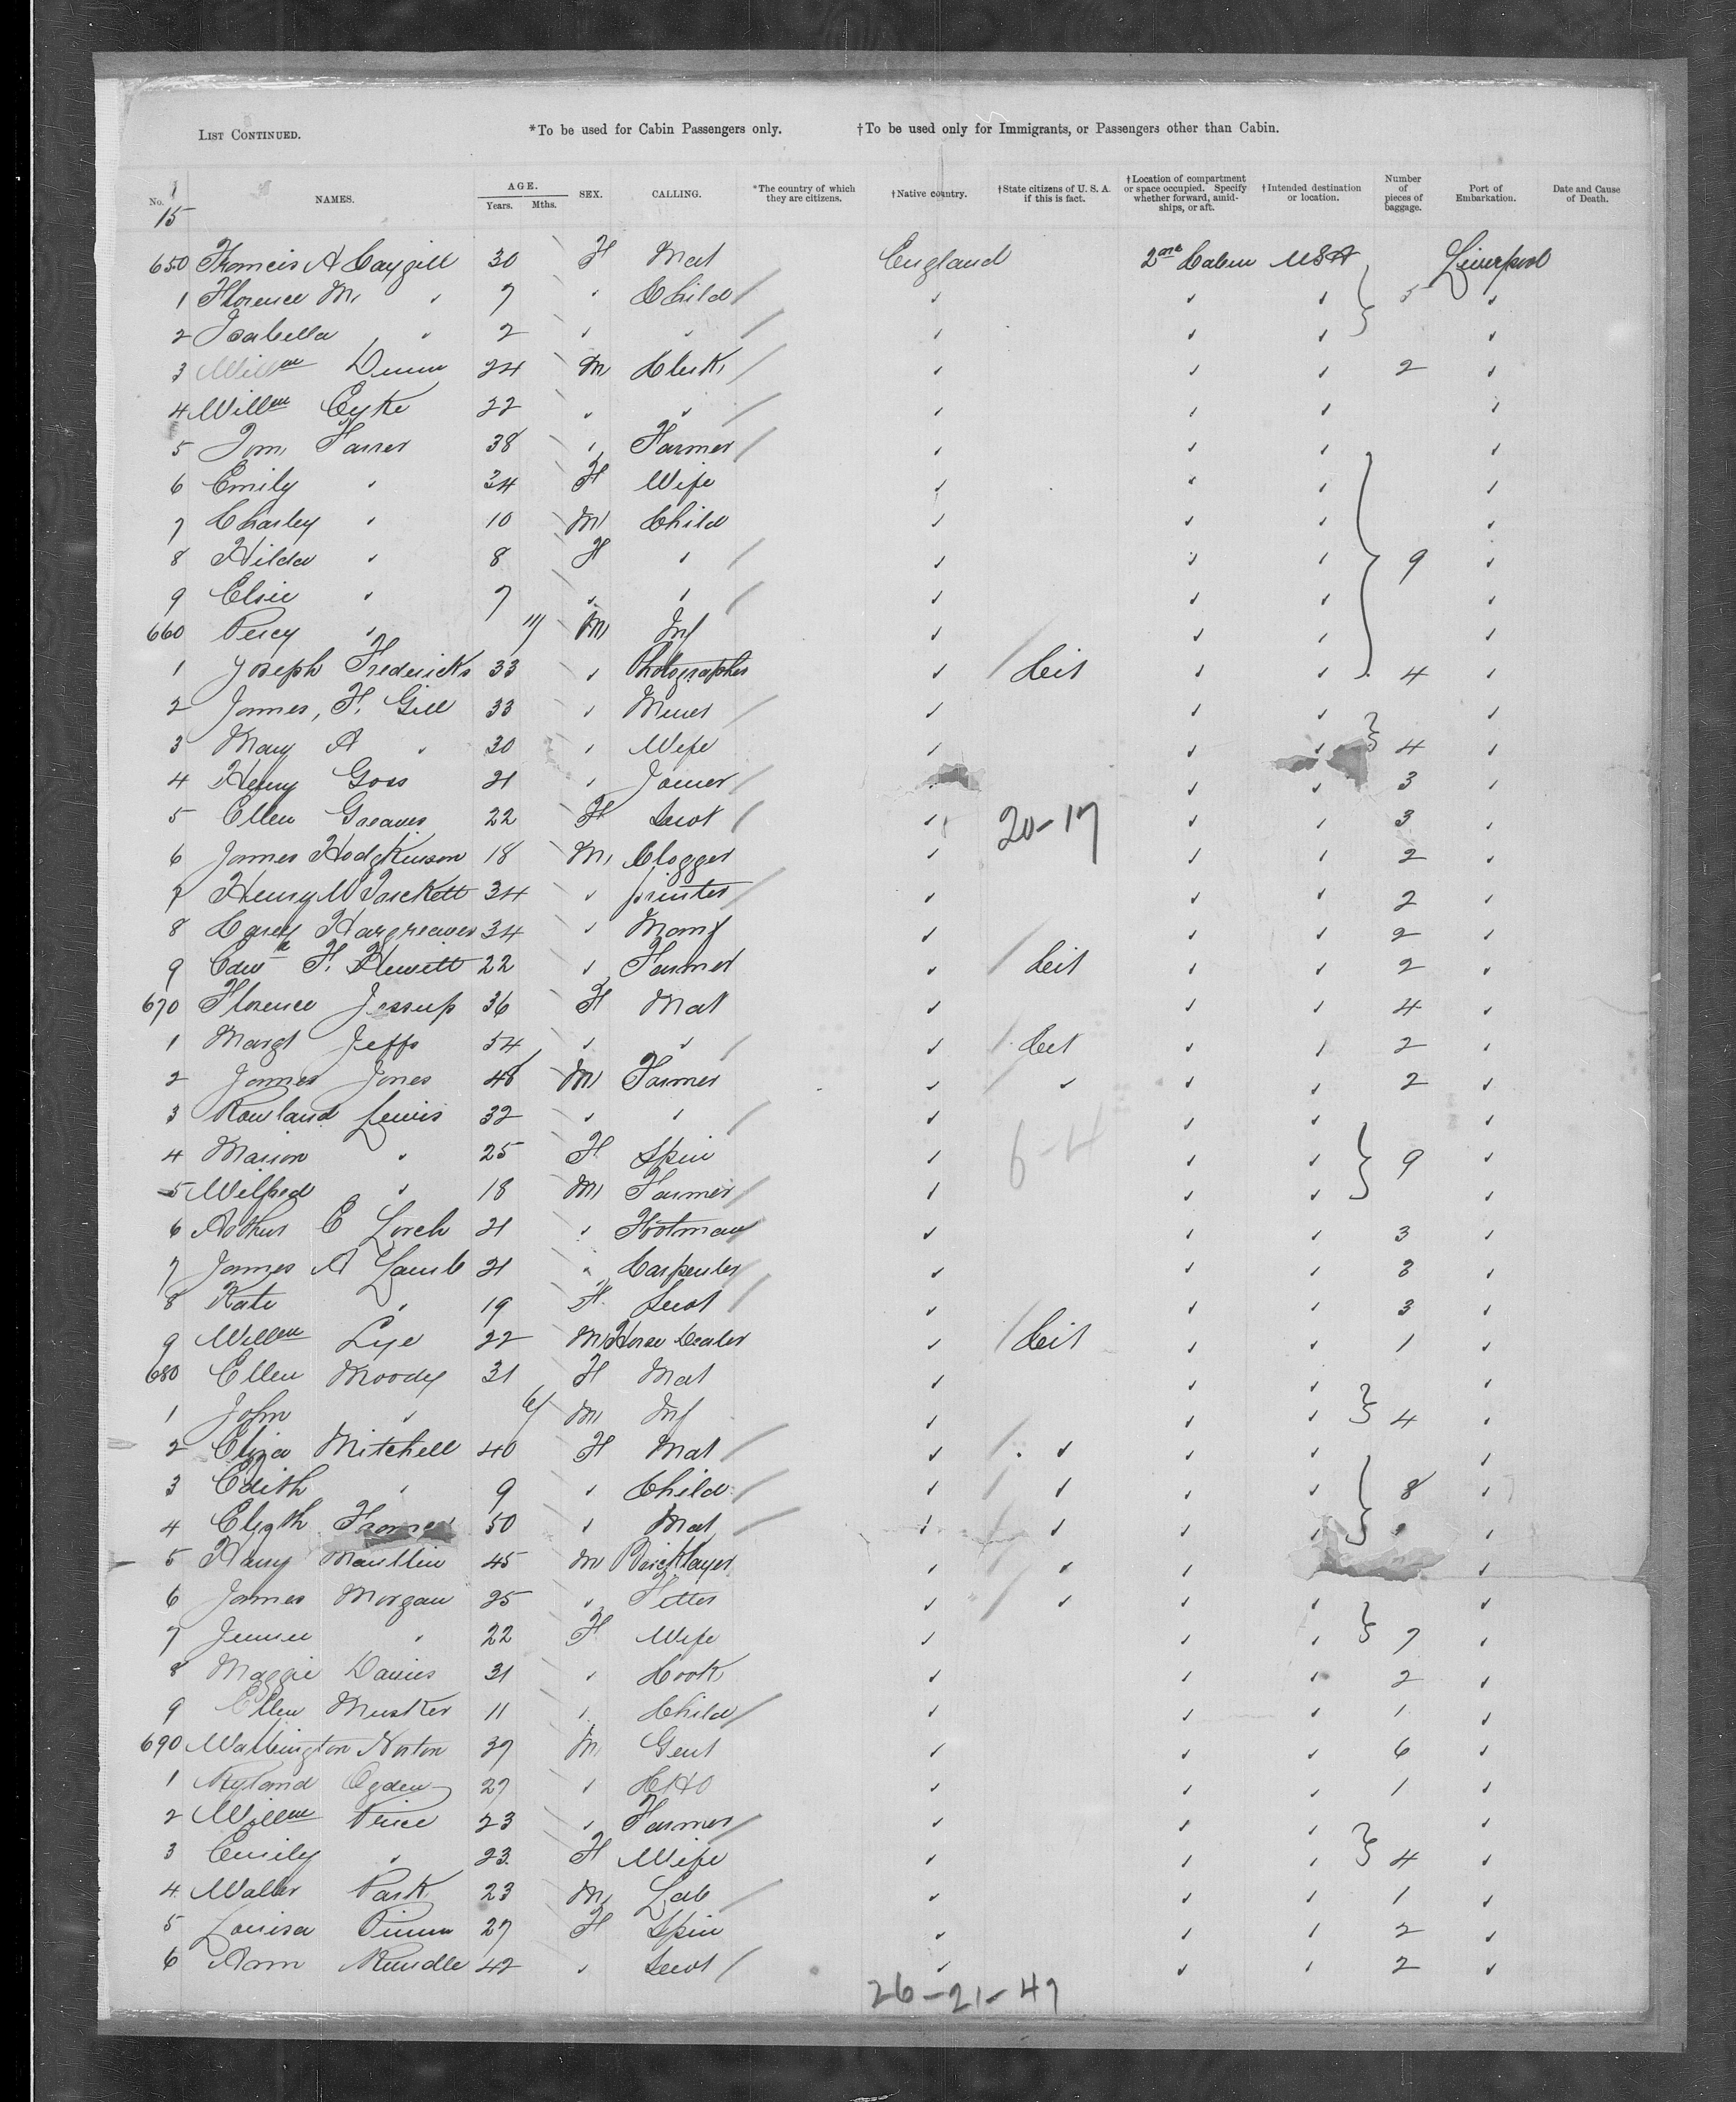 LIST CONTINUED. *To be used for Cabin Passengers only. †To be used only for Immigrants, or Passengers other than Cabin.
No. NAMES. AGE. Years. Mths. SEX. CALLING. *The country of which they are citizens. †Native country. †State citizens of U. S. A. if this is fact. †Location of compartment or space occupied. Specify whether forward, amidships, or aft. †Intended destination or location. Number of pieces of baggage. Port of Embarkation. Date and Cause of Death.
1
15
650 Francis A Caygill 30 F Mat England 2nd Cabin USA Liverpool
1 Florence M " 7 " Child " " " 5 "
2 Isabella " 2 " " " " " "
3 Willm Dunn 24 M Clerk " " " 2 "
4 Willm Cyke 22 " " " " " "
5 Tom Farrer 38 " Farmer " " " "
6 Emily " 34 F Wife " " " "
7 Charley " 10 M Child " " " "
8 Hilda " 8 F " " " " 9 "
9 Elsie " 7 " " " " " "
660 Percy " 11/ M Inf " " " "
1 Joseph Fredericks 33 " Photographer " Cit " " 4 "
2 James, F. Gill 33 " Miner " " " "
3 Mary A " 30 " Wife " " " 4 "
4 Henry Goss 21 " Joiner " " " 3 "
5 Ellen Greaves 22 F Servt " 20-17 " " 3 "
6 James Hodgkinson 18 M Clogger " " " 2 "
7 Henry W 34 " printer " " " 2 "
8 Hargreaves 34 " Manf " " " 2 "
9 Edwd F. Hewitt 22 " Farmer " Cit " " 2 "
670 Florence Jessup 36 F Mat " " " 4 "
1 Margt Jeffs 54 " " " Cit " " 2 "
2 James Jones 48 M Farmer " " " " 2 "
3 Rowland Lewis 32 " " " " " "
4 Marion " 25 F Spin " 6-4 " " 9 "
5 Wilfred " 18 M Farmer " " " "
6 Arthur E Lorch 21 " Footman " " " 3 "
7 James A Lamb 21 " Carpenter " " " 3 "
8 Kate " 19 F. Servt " " " 3 "
9 Willm Lye 22 M Horse Dealer " Cit " " 1 "
680 Ellen Moody 31 F Mat " " " "
1 John " 6/ M Inf " " " 4 "
2 Eliza Mitchell 40 F Mat " " " " "
3 Edith " 9 " Child " " " " 8 "
4 Elizth 50 " Mat " " " " "
5 Harry Maullin 45 M Bricklayer " " " "
6 James Morgan 25 " Fitter " " " " "
7 Jennie " 22 F Wife " " " 7 "
8 Maggie Davies 31 " Cook " " " 2 "
9 Ellen Musker 11 " Child " " " 1 "
690 Wallington Norton 37 M Gent " " " 6 "
1 Ryland Ogden 27 " " " " 1 "
2 Willm Price 23 " Farmer " " " "
3 Emily " 23 F Wife " " " 4 "
4 Walter Park 23 M Lab " " " 1 "
5 Louisa Pimm 27 F Spin " " " 2 "
6 Ann Rundle 42 " Servt " " " 2 "
26-21-47